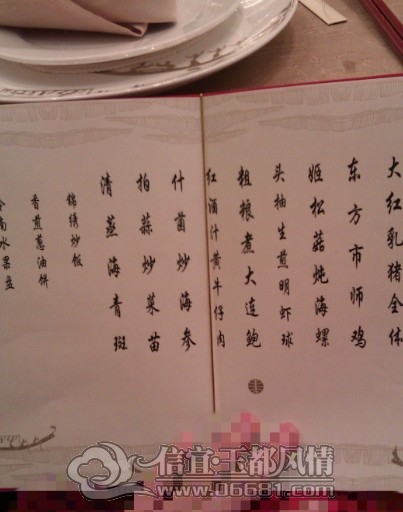 大红乳猪全体
东方市师鸡
姬松菇炖海螺
头抽生煎明虾球
粗粮煮大连鲍
红酒汁黄牛仔肉
什菌炒海参
拍蒜炒菜苗
清蒸海青斑
锦绣炒饭
香煎葱油饼
水果盘
信宜·玉都风情
www.06681.com